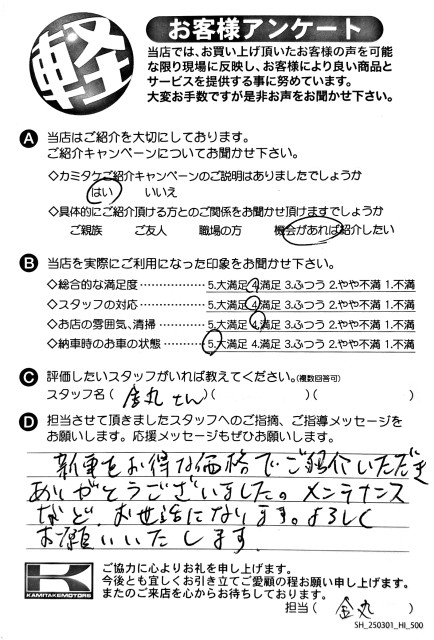 軽
お客様アンケート
当店では、お買い上げ頂いたお客様の声を可能
な限り現場に反映し、お客様により良い商品と
サービスを提供する事に努めています。
大変お手数ですが是非お声をお聞かせ下さい。
A 当店はご紹介を大切にしております。
ご紹介キャンペーンについてお聞かせ下さい。
◇カミタケご紹介キャンペーンのご説明はありましたでしょうか
はい いいえ
◇具体的にご紹介頂ける方とのご関係をお聞かせ頂けますでしょうか
ご親族 ご友人 職場の方 機会があれば紹介したい
B 当店を実際にご利用になった印象をお聞かせ下さい。
◇総合的な満足度 5.大満足 4.満足 3.ふつう 2.やや不満 1.不満
◇スタッフの対応 5.大満足 4.満足 3.ふつう 2.やや不満 1.不満
◇お店の雰囲気、清掃 5.大満足 4.満足 3.ふつう 2.やや不満 1.不満
◇納車時のお車の状態 5.大満足 4.満足 3.ふつう 2.やや不満 1.不満
C 評価したいスタッフがいれば教えてください。(複数回答可)
スタッフ名(金丸さん)( )( )
D 担当させて頂きましたスタッフへのご指摘、ご指導メッセージを
お願いします。応援メッセージもぜひお願いします。
新車をお得な価格でご紹介いただき
ありがとうございました。メンテナンス
など、お世話になります。よろしく
お願いいたします
K
KAMITAKEMOTORS
ご協力に心よりお礼を申し上げます。
今後とも宜しくお引き立てご愛顧の程お願い申し上げます。
またのご来店を心からお待ちしております。
担当(金丸)
SH_250301_HI_500